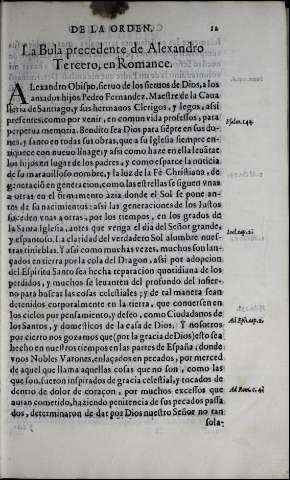 DE LA ORDEN. 12
La Bula precedente de Alexandro
Tercero, en Romance.
ALexandro Obispo, sieruo de los sieruos de Dios, a los
amados hijos Pedro Fernandez, Maestre de la Caua
lleria de Santiago, y sus hermanos Clerigos, y legos, assi
presentes, como por venir, en comun vida professos, para
perpetua memoria. Bendito sea Dios para siẽpre en sus do-
nes, y santo en todas sus obras, que a su Iglesia siempre en-
riquece con nueuo linage, y assi como haze en ella leuãtar
los hijos en lugar de los padres, y como esparce la noticia
de su marauilloso nombre, y la luz de la Fè Christiana, de
generaciõ en generacion, como las estrellas se siguen vnas
a otras en el firmamento azia donde el Sol se pone an-
tes de su nacimiento: assi las generaciones de los Iustos
suceden vnas a otras, por los tiempos, en los grados de
la Santa Iglesia, antes que venga el dia del Señor grande,
y espantoso. La claridad del verdadero Sol alumbre nues-
tras tinieblas. Y assi como muchas vezes, muchos son lan-
çados en tierra por la cola del Dragon, assi por adopcion
del Espiritu Santo sea hecha reparacion quotidiana de los
perdidos, y muchos se leuanten del profundo del infier-
no para buscar las cosas celestiales; y de tal manera sean
detenidos corporalmente en la tierra, que conuersen en
los cielos por pensamiento, y deseo, como Ciudadanos de
los Santos, y domesticos de la casa de Dios. Y nosotros
por cierto nos gozamos que (por la gracia de Dios) esto sea
hecho en nuestros tiempos en las partes de España, donde
vnos Nobles Varones, enlaçados en pecados, por merced
de aquel que llama aquellas cosas que no son, como las
que son, fueron inspirados de gracia celestial, y tocados de
dentro de dolor de coraçon, por muchos excessos que
auian cometido, haziendo penitencia de sus pecados passa
dos, determinaron de dar por Dios nuestro Señor no tan
sola-
Psalm. 144.
Ioel. cap. 2.
Ad Ephe. cap. 2.
Ad Rom. c. 4.